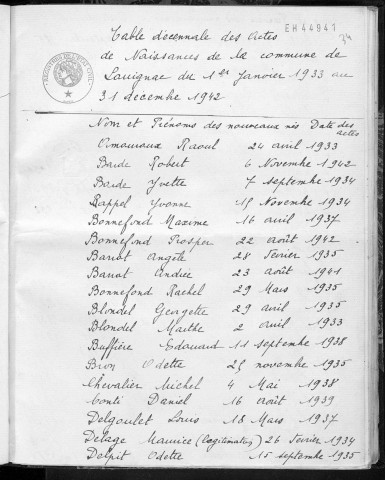 EH 44941
Table décennale des Actes
de Naissances de la commune de
Louignac du 1er Janvier 1933 au
31 décembre 1942
Nom et Prénoms des nouveaux nés Date des actes
Amouroux Raoul 24 avril 1933
Barde Robert 6 Novembre 1942
Barde Yvette 7 septembre 1934
Yvonne 15 Novembre 1934
Bonnefond Maxime 16 avril 1937
Bonnefond Prosper 22 août 1942
Barrat Angèle 28 Février 1935
Barrat Andrée 23 août 1941
Bonnefond Rachel 29 Mars 1935
Blondel Georgette 29 avril 1935
Blondel Marthe 2 avril 1933
Buffière Edouard 11 septembre 1938
Brou Odette 25 novembre 1935
Chevalier Michel 4 Mai 1938
Conti Daniel 16 août 1939
Delgoulet Louis 18 Mars 1937
Delage Maurice (Légitimation) 26 Février 1934
Delpit Odette 15 septembre 1935